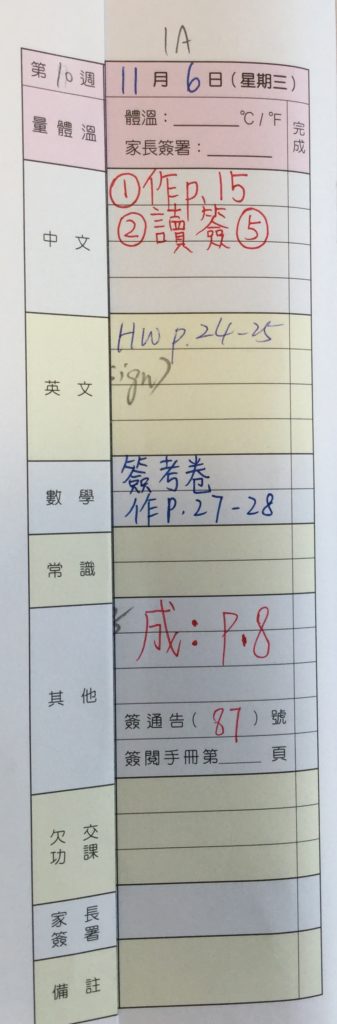 1A
第10週 11月6日(星期三)
量體溫 體溫：______°C/°F 完成
家長簽署：______
中文 ①作p.15
②讀簽⑤
英文 HW p.24-25
sign)
數學 簽考卷
作P.27-28
常識
其他 成：p.8
簽通告(87)號
簽閱手冊第____頁
欠交功課
家長簽署
備註